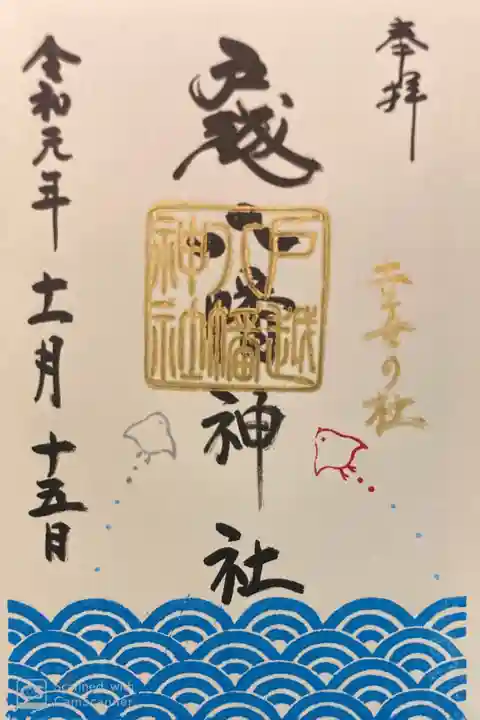 奉拝
幸せの社
戸越八幡神社
戸越八幡神社
令和元年 十一月 十五日
Scanned with
CamScanner